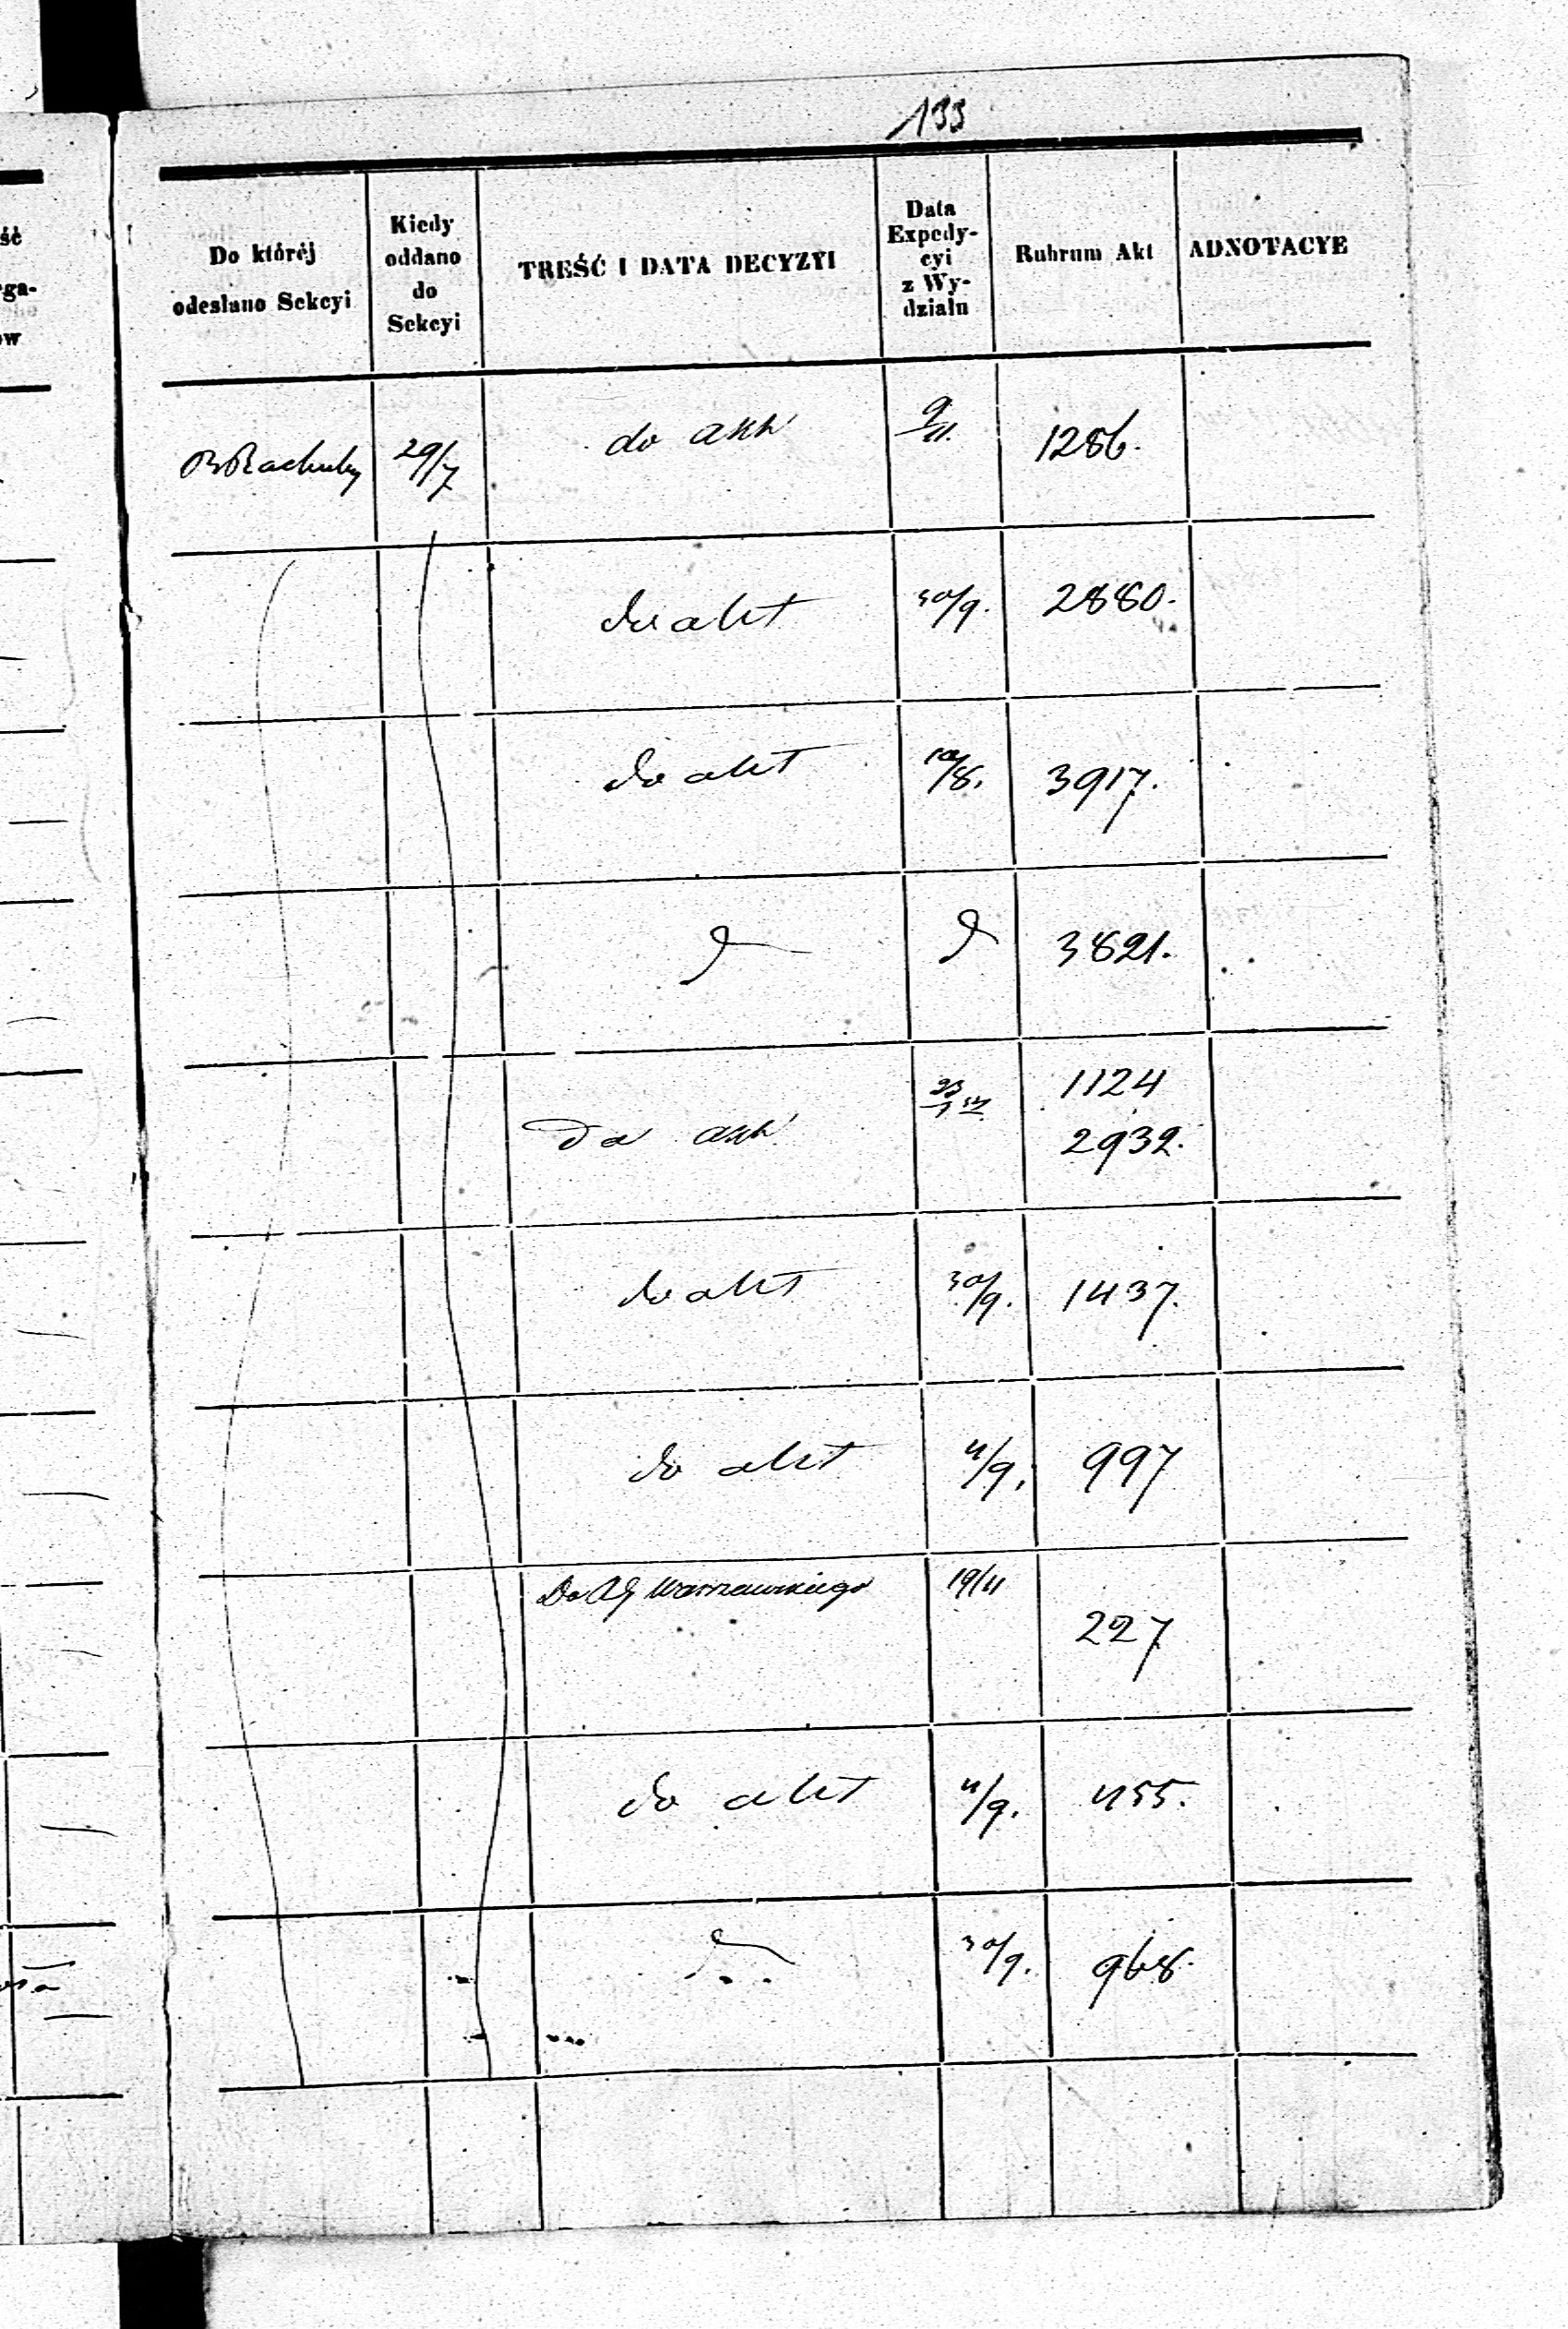 133
ść
ga-
ów
Do któréj
odesłano Sekcyi
Kiedy
oddano
do
Sekcyi
TREŚĆ I DATA DECYZYI
Data
Expedy-
cyi
z Wy-
działu
Rubrum Akt
ADNOTACYE
29/7 do akt 9/11. 1286.
do akt 30/9. 2880.
do akt 10/8. 3917.
3821.
1124
do akt 2932.
do akt 30/9. 1437.
do akt 11/9. 997
Do Warszawskiego 19/11
227
do akt 11/9. 455.
30/9. 968.